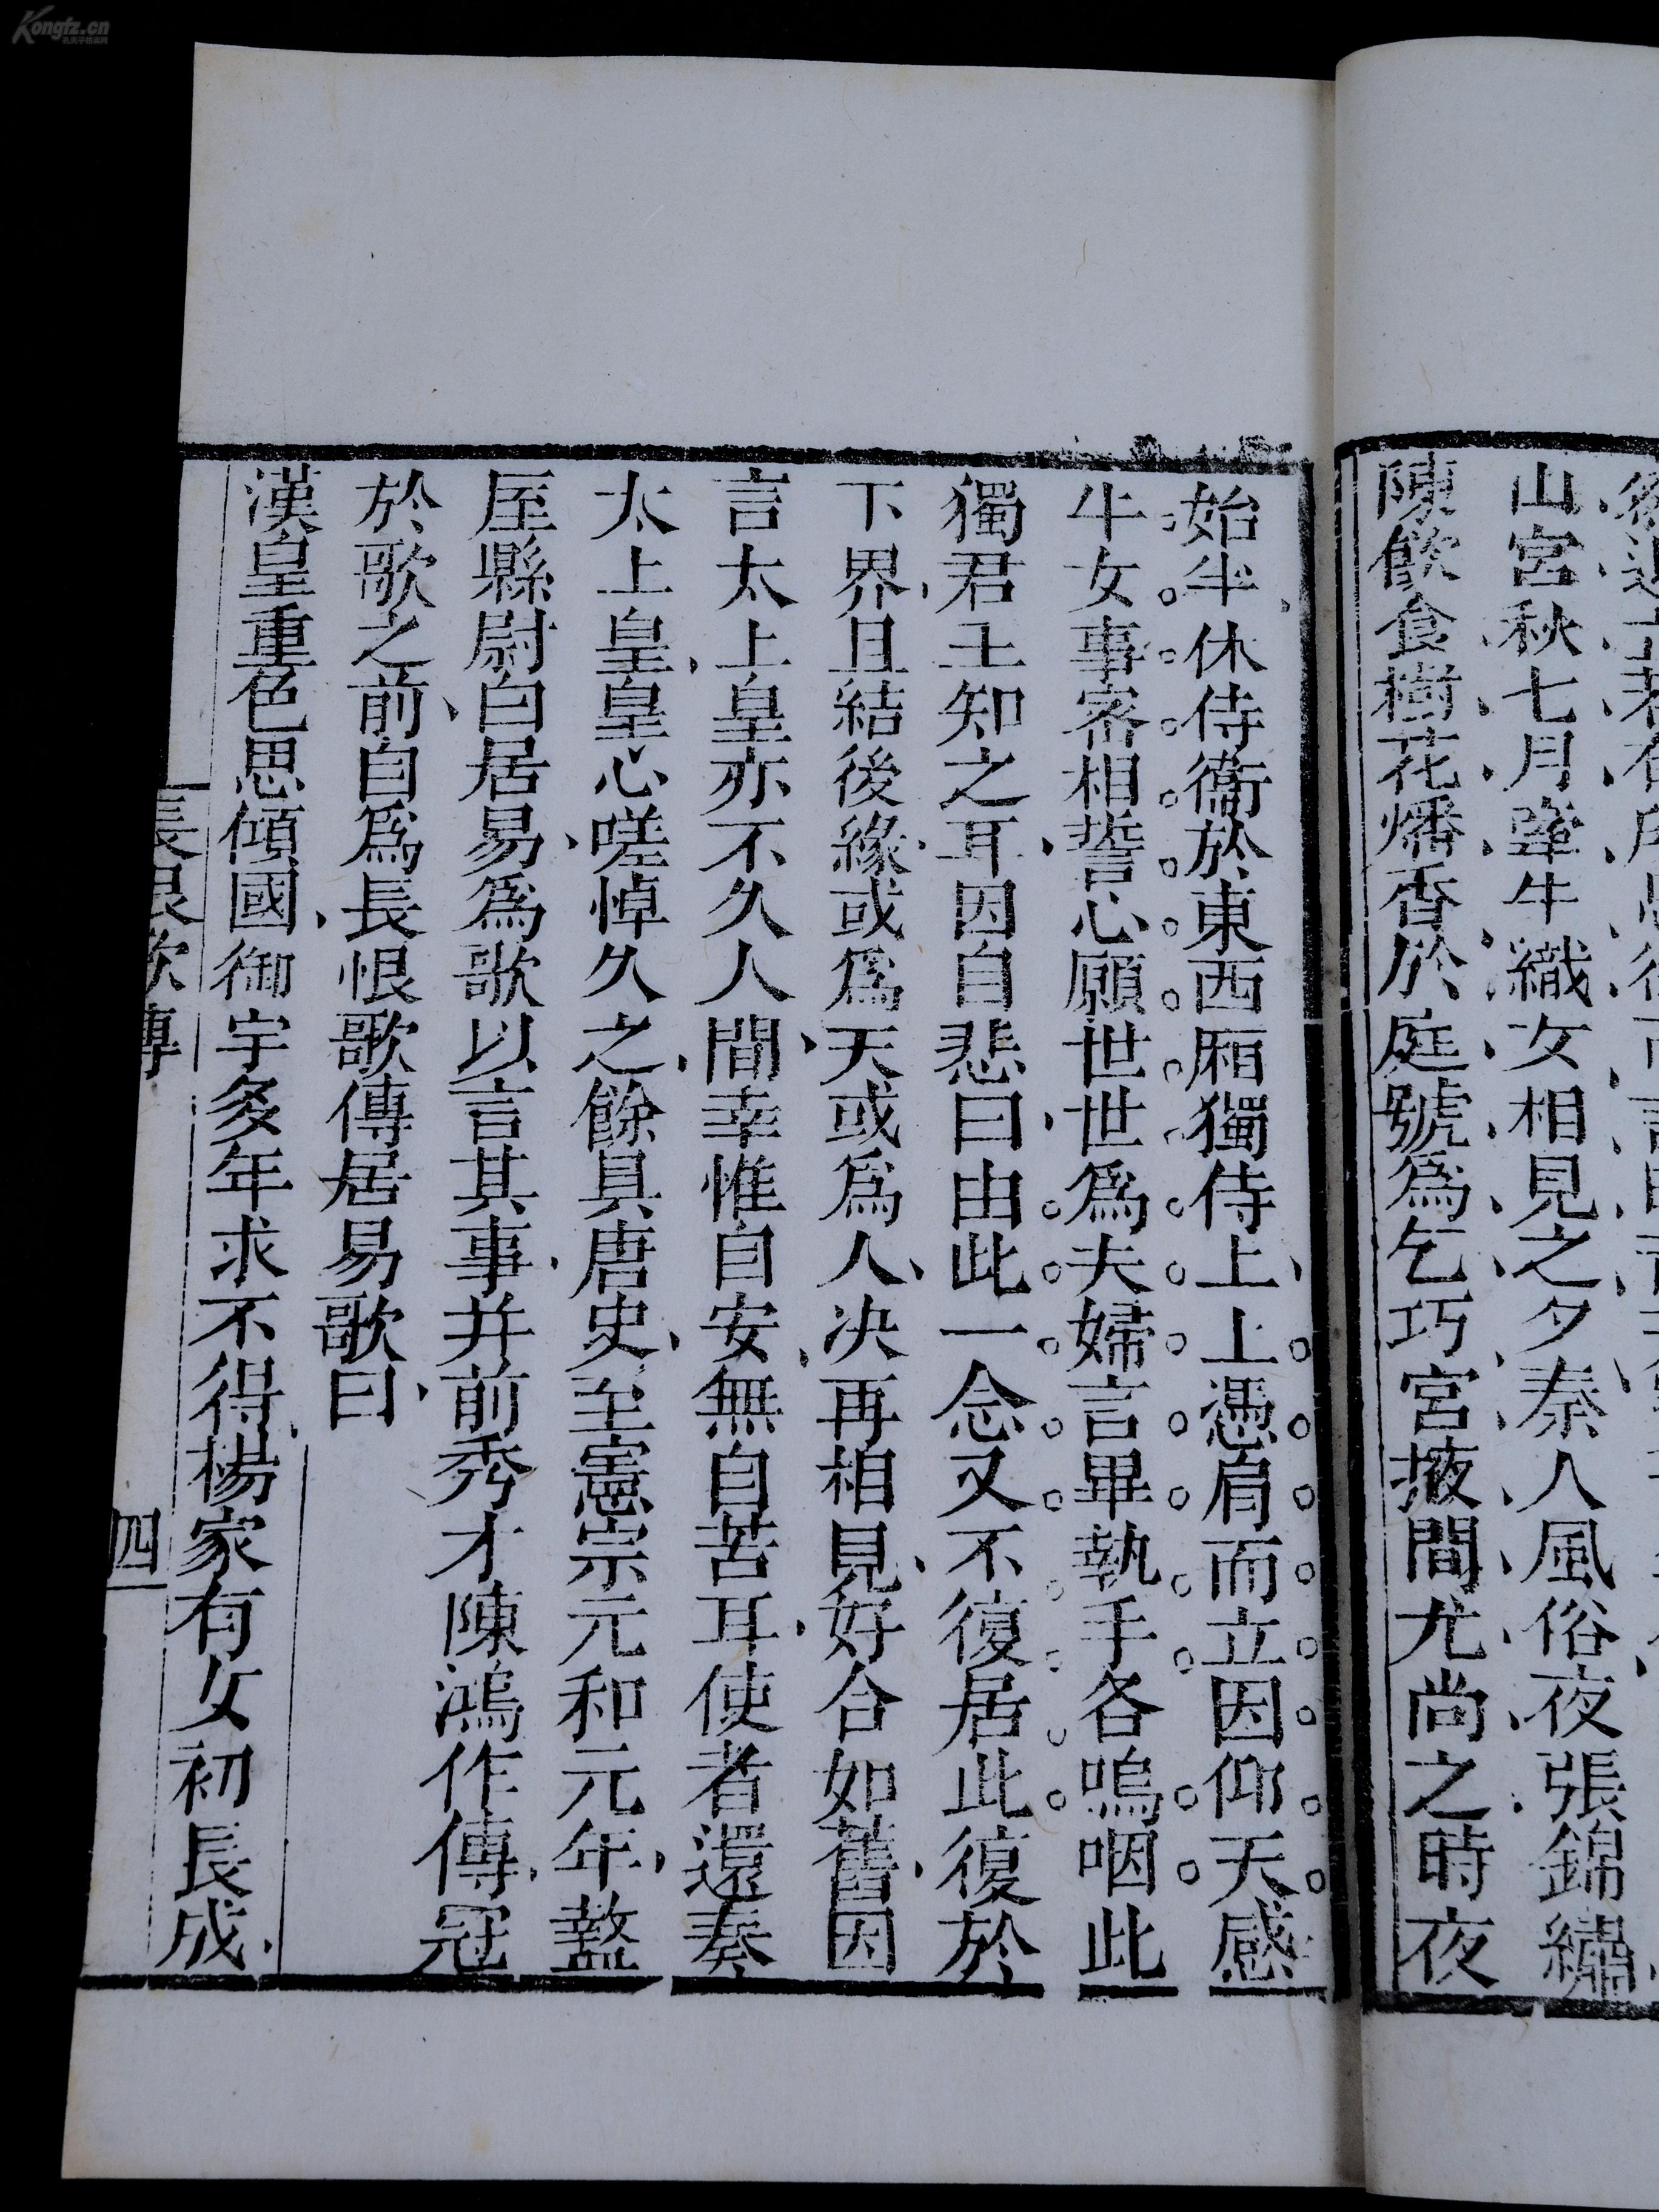 山宮秋七月牽牛織女相見之夕秦人風俗夜張錦繡
陳飲食樹花燔香於庭號爲乞巧宮掖間尤尚之時夜
始半休侍衞於東西厢獨侍上上憑肩而立因仰天感
牛女事密相誓心願世世爲夫婦言畢執手各嗚咽此
獨君王知之耳因自悲曰由此一念又不復居此復於
下界且結後緣或爲天或爲人决再相見好合如舊因
言太上皇亦不久人間幸惟自安無自苦耳使者還奏
太上皇皇心嗟悼久之餘具唐史至憲宗元和元年盩
厔縣尉白居易爲歌以言其事并前秀才陳鴻作傳冠
於歌之前自爲長恨歌傳居易歌曰
漢皇重色思傾國御宇多年求不得楊家有女初長成
長恨歌傳
四
Kongfz.cn